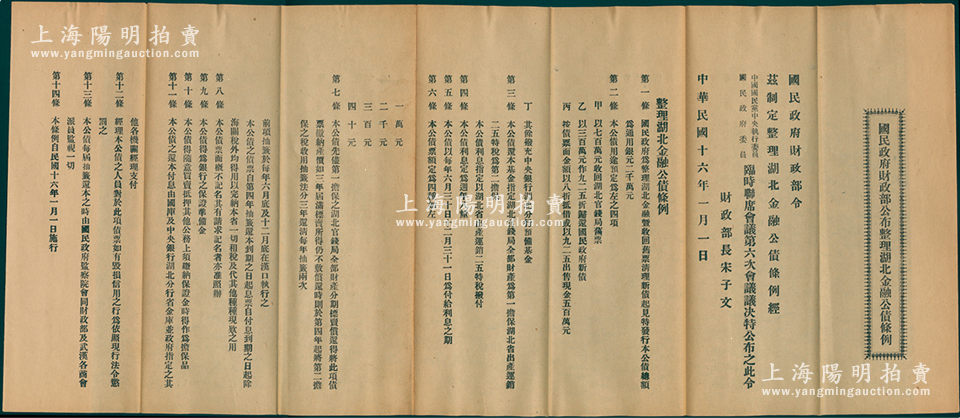 上海陽明拍賣
www.yangmingauction.com
上海陽明拍賣
www.yangmingauction.com
國民政府財政部公布整理湖北金融公債條例
國民政府財政部令
茲制定整理湖北金融公債條例經
中國國民黨中央執行委員
國民政府委員
臨時聯席會議第六次會議議决特公布之此令
財政部長宋子文
中華民國十六年一月一日
整理湖北金融公債條例
第一條 國民政府爲整理湖北金融曁收回舊票清理新債起見特發行本公債總額
爲通用銀元二千萬元
第二條 本公債用途預定爲左之四項
甲 以七百萬元收回湖北官錢局舊票
乙 以三百萬元作九二五折歸還國民政府新債
丙 按債票面金額以八折抵借或以九二五出售現金五百萬元
丁 其餘撥充中央銀行湖北分行預備基金
第三條 本公債還本基金指定湖北官錢局全部財產爲第一擔保湖北省出產運銷
二五特稅爲第二擔保
第四條 本公債利息指定以湖北省出產運銷二五特稅撥付
本公債利息定爲週年八厘
第五條 本公債以每年六月三十日及十二月三十一日爲付給利息之期
第六條 本公債票額定爲四種如左
一萬元
一千元
一百元
一十元
第七條 本公債先儘第一擔保之湖北官錢局全部財產分期標賣償還得將此項債
票繳納產價如三年屆滿標賣所得仍不敷償還時則於第四年起將第二擔
保之稅收用抽籤法分三年還清每年抽籤兩次
前項抽籤於每年六月底及十二月底在漢口執行之
本公債之債票自第四年抽籤還本到期之日起息票自付息到期之日起除
海關稅外均得用以完納本省一切租稅及代其他種種現欵之用
第八條 本公債票面概不記名其有請求記名者亦准照辦
第九條 本公債得爲銀行之保證準備金
第十條 本公債得隨意買賣抵押其他公務上須繳納保證金時得作爲擔保品
第十一條 本公債之還本付息由國庫及中央銀行湖北分行省金庫並政府指定之其
他各機關經理支付
第十二條 經理本公債之人員對於此項債票如有毀損信用之行爲依照現行法令懲
罰之
第十三條 本公債每屆抽籤還本之時由國民政府監察院會同財政部及武漢各商會
派員監視一切
第十四條 本條例自民國十六年一月一日施行